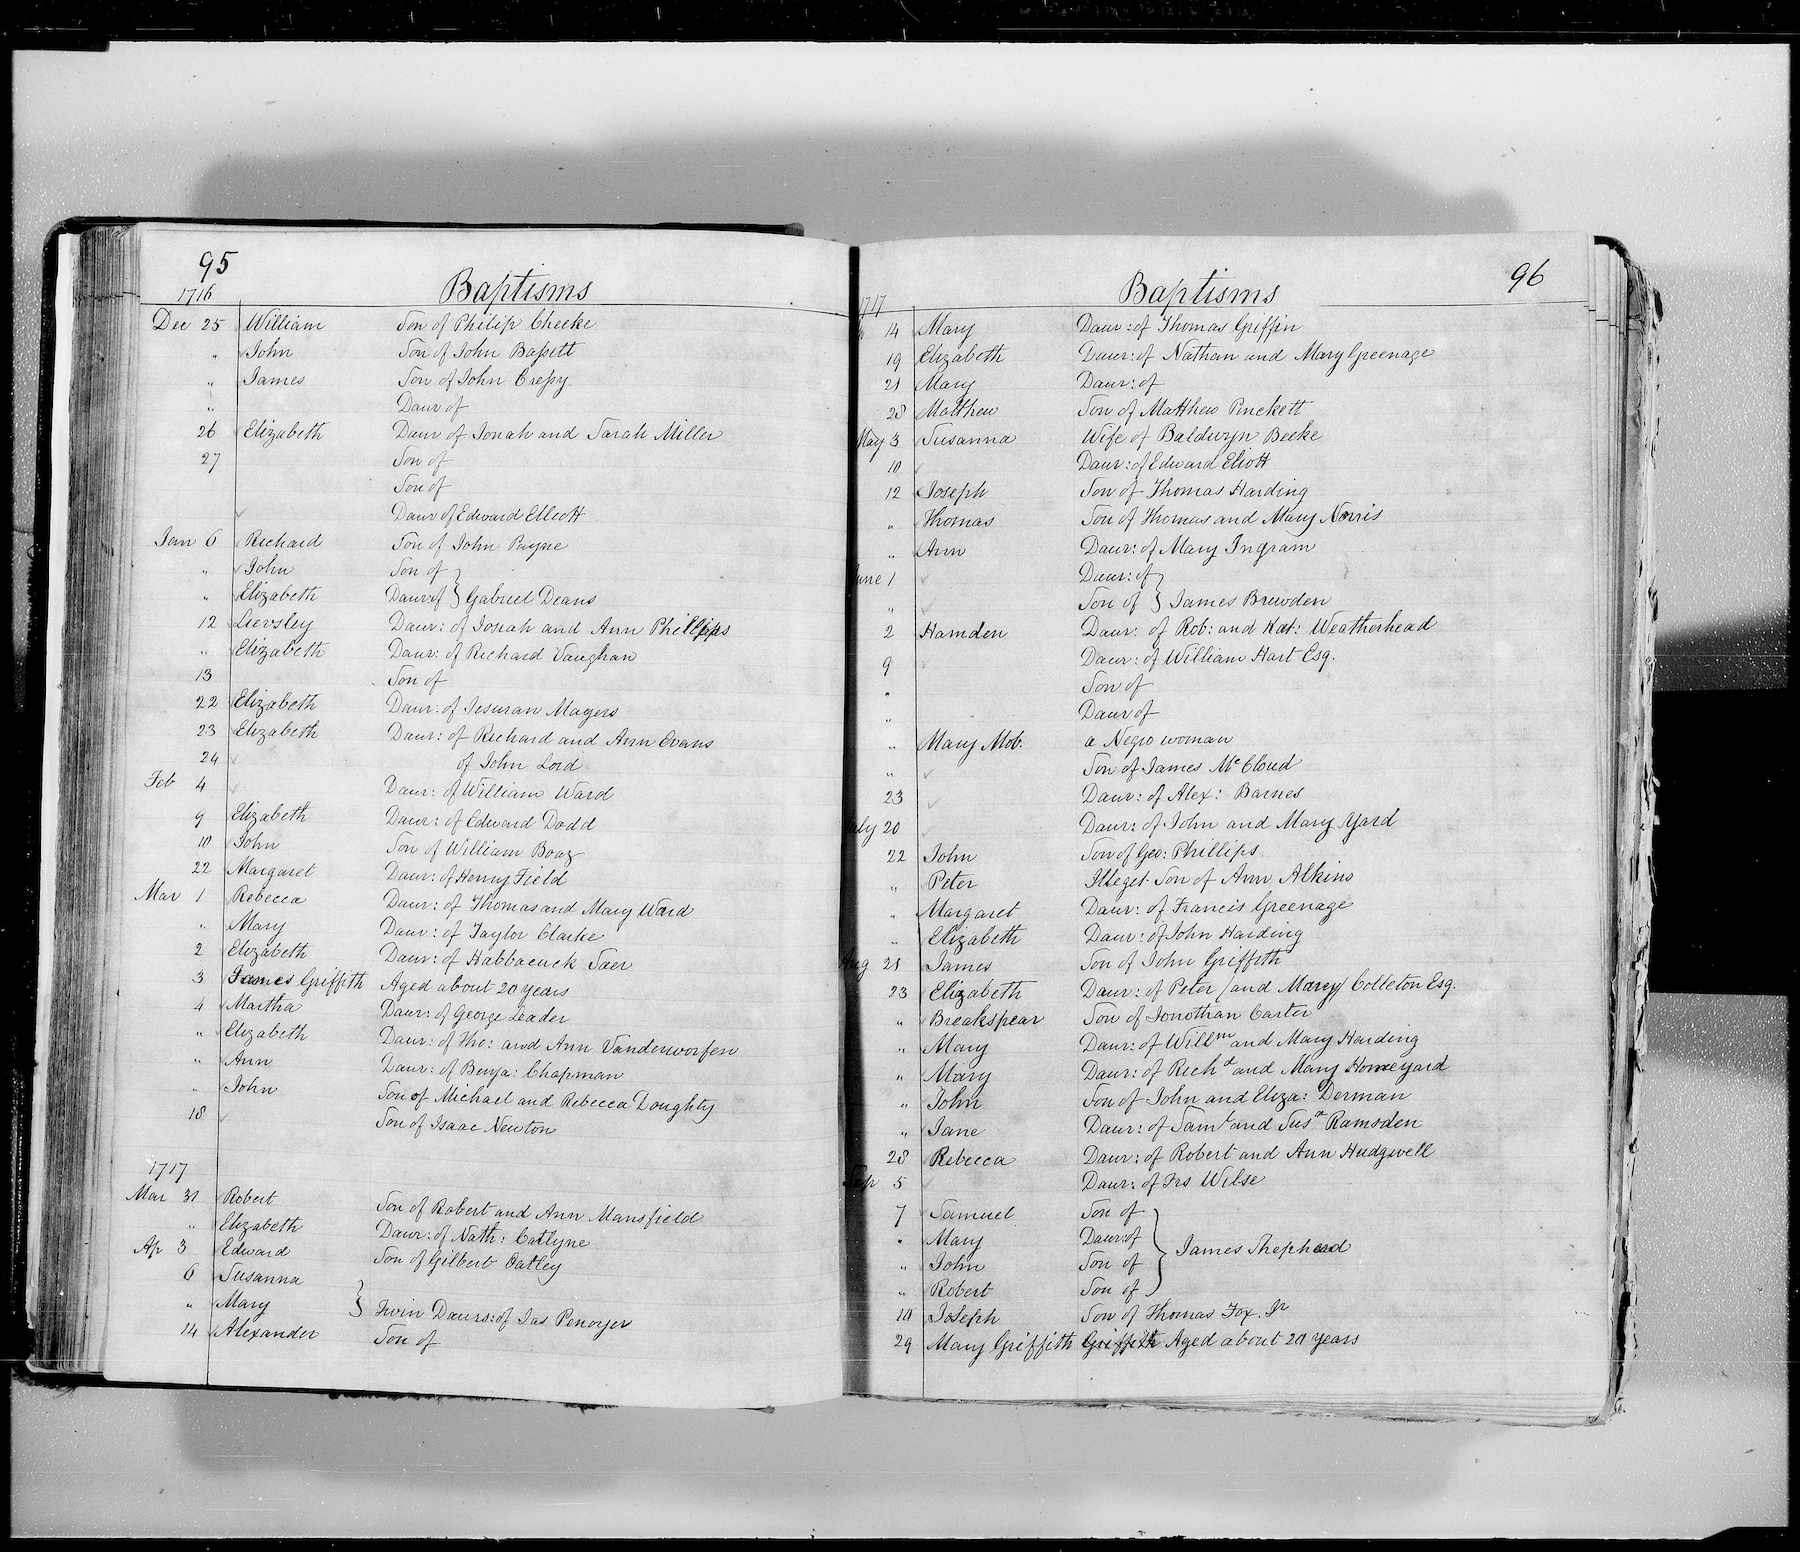 95
1716 Baptisms
Dec 25 William Son of Philip Cheeke
" John Son of John Bassett
" James Son of John Cressy
" Daur of
26 Elizabeth Daur of Jonah and Sarah Miller
27 Son of
Son of
Daur of Edward Elleott
Jan 6 Richard Son of John Payne
" John Son of
" Elizabeth Daur: of } Gabriel Deans
12 Liersley Daur: of Josiah and Ann Phillipps
" Elizabeth Daur: of Richard Vaughan
13 Son of
22 Elizabeth Daur: of Jesuran Magers
23 Elizabeth Daur: of Richard and Ann Evans
24 of John Lord
Feb 4 Daur: of William Ward
9 Elizabeth Daur: of Edward Dodd
10 John Son of William Boaz
22 Margaret Daur: of Henry Field
Mar 1 Rebecca Daur: of Thomas and Mary Ward
" Mary Daur: of Taylor Clarke
2 Elizabeth Daur: of Habbacuck Saer
3 James Griffith Aged about 20 years
4 Martha Daur: of George Leader
" Elizabeth Daur: of Tho: and Ann Vanderworfen
" Ann Daur: of Benja: Chapman
" John Son of Michael and Rebecca Doughty
18 Son of Isaac Newton
1717
Mar 31 Robert Son of Robert and Ann Mansfield
" Elizabeth Daur: of Nath: Catlyne
Ap 3 Edward Son of Gilbert Oatley
6 Susanna
" Mary } Twin Daurs: of Jas Penoyer
14 Alexander Son of
96
1717 Baptisms
14 Mary Daur: of Thomas Griffin
19 Elizabeth Daur: of Nathan and Mary Greenage
21 Mary Daur: of
28 Matthew Son of Matthew Pinckett
May 3 Susanna Wife of Baldwyn Beeke
10 Daur: of Edward Eliott
12 Joseph Son of Thomas Harding
" Thomas Son of Thomas and Mary Norris
" Ann Daur: of Mary Ingram
June 1 Daur: of
" Son of } James Brewden
2 Hamden Daur: of Rob: and Kat: Weatherhead
9 Daur: of William Hart Esq.
" Son of
" Daur of
" Mary Mob. a Negro woman
" Son of James McCloud
23 Daur: of Alex: Barnes
July 20 Daur: of John and Mary Yard
22 John Son of Geo: Phillips
" Peter Illeget Son of Ann Alkins
" Margaret Daur: of Francis Greenage
" Elizabeth Daur: of John Harding
Aug 21 James Son of John Griffeth
23 Elizabeth Daur: of Peter (and Mary) Colleton Esq.
" Breakspear Son of Jonothan Carter
" Mary Daur: of Willm and Mary Harding
" Mary Daur: of Richd and Mary Homeyard
" John Son of John and Eliza: Derman
" Jane Daur: of Saml and Susa Ramsden
28 Rebecca Daur: of Robert and Ann Hudgwell
Sep 5 Daur: of Frs Wilse
7 Samuel Son of
" Mary Daur: of
" John Son of } James Shepherd
" Robert Son of
10 Joseph Son of Thomas Fox. Jr
29 Mary Griffith Griffith Aged about 20 years